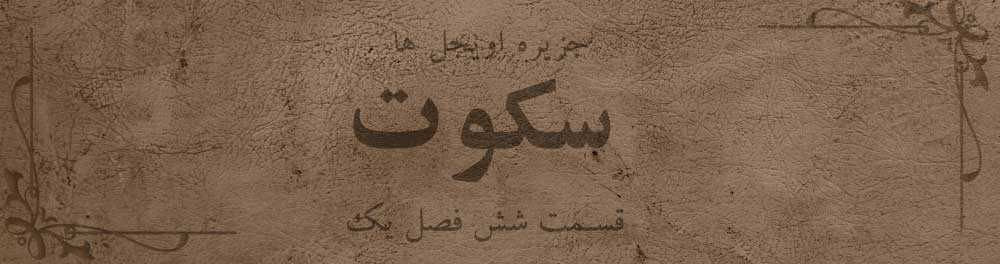 جزیره اویجل ها
سکوت
قسمت شش فصل یک